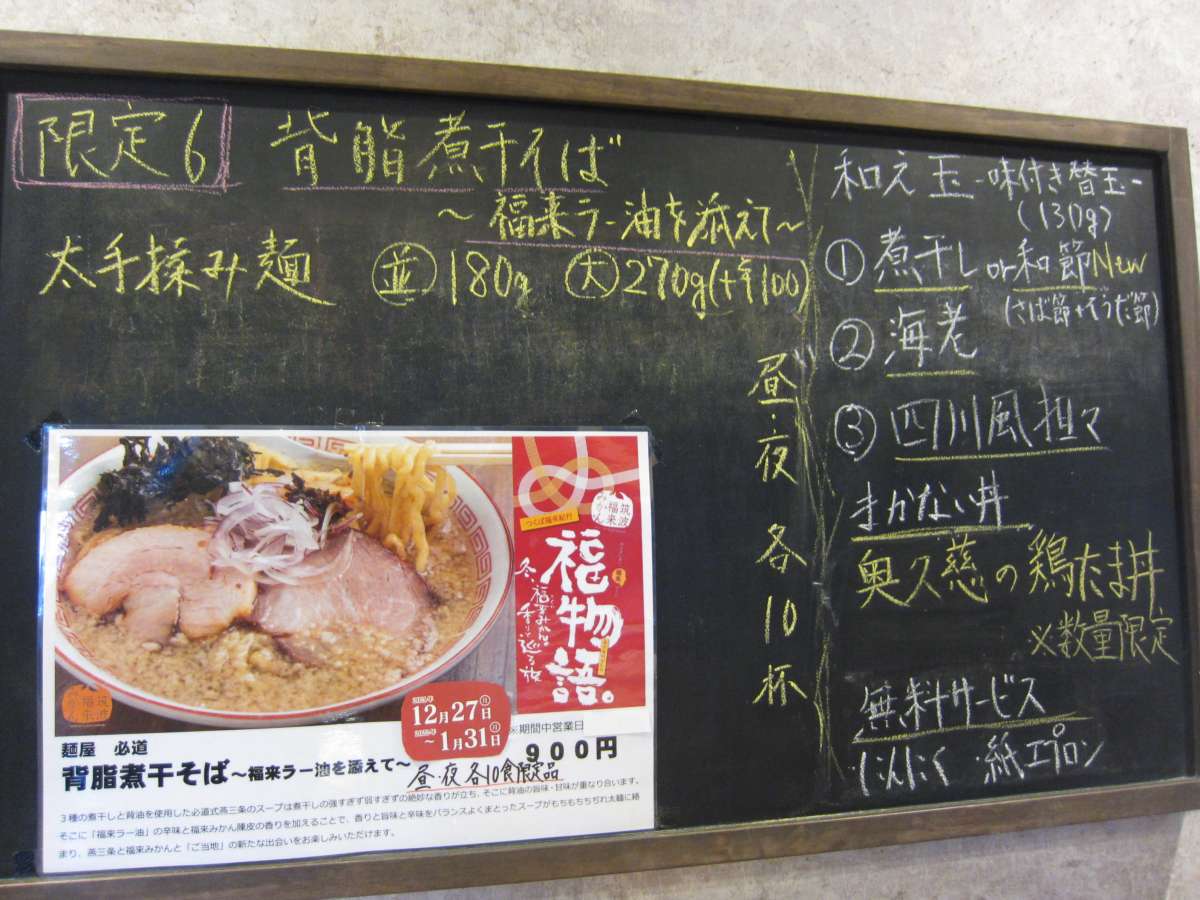 限定6 背脂煮干そば
～福来ラー油を添えて～
太手揉み麺 並 180g 大 270g(+¥100)
昼・夜 各10杯
和え玉 -味付き替玉-
(130g)
① 煮干し or 和節 New
(さば節+そうだ節)
② 海老
③ 四川風担々
まかない丼
奥久慈の鶏たま丼
※数量限定
無料サービス
・にんにく ・紙エプロン
筑波
福来
みかん
つくば福来紀行
福物語。
冬、福来みかんの
香りで巡る旅
筑波
福来
みかん
12月27日
～1月31日
※期間中営業日
麺屋 必道
900円
背脂煮干そば～福来ラー油を添えて～
昼・夜 各10食限定品
3種の煮干しと背油を使用した必道式燕三条のスープは煮干しの強すぎず弱すぎずの絶妙な香りが立ち、そこに背油の旨味・甘味が重なり合います。
そこに「福来ラー油」の辛味と福来みかん陳皮の香りを加えることで、香りと旨味と辛味をバランスよくまとったスープがもちもちちぢれ太麺に絡
まり、燕三条と福来みかんと「ご当地」の新たな出会いをお楽しみいただけます。